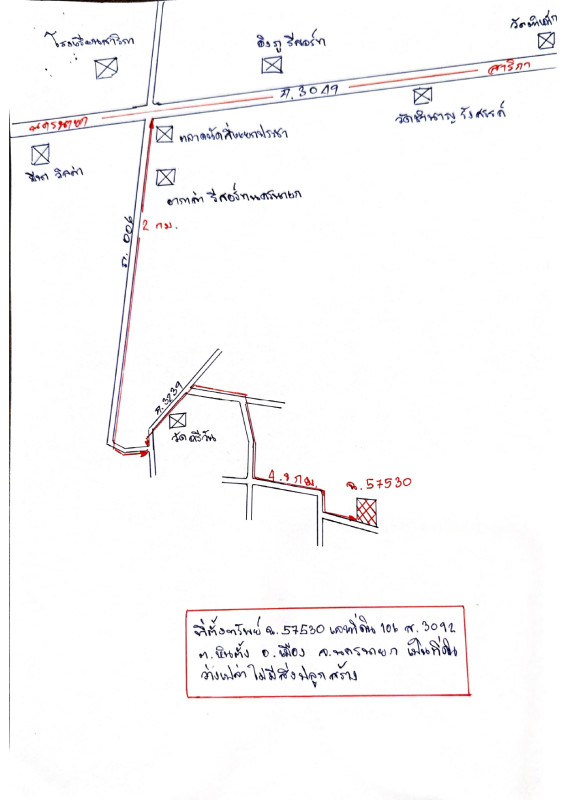 วัดท่าด่าน
โรงเรียนสาริกา
อิงภู รีสอร์ท
ถ.3049
สาริกา
นครนายก
วัดชำนาญรังสรรค์
ตลาดนัดสี่แยกประชา
อาภาล่า รีสอร์ทนครนายก
2 กม.
ถ.3239
วัดศรีวัน
4.9 กม.
ฉ.57530
ที่ตั้งทรัพย์ ฉ.57530 เลขที่ดิน 106 ส.3092
ต.หินตั้ง อ.เมือง จ.นครนายก เป็นที่ดิน
ว่างเปล่า ไม่มีสิ่งปลูกสร้าง